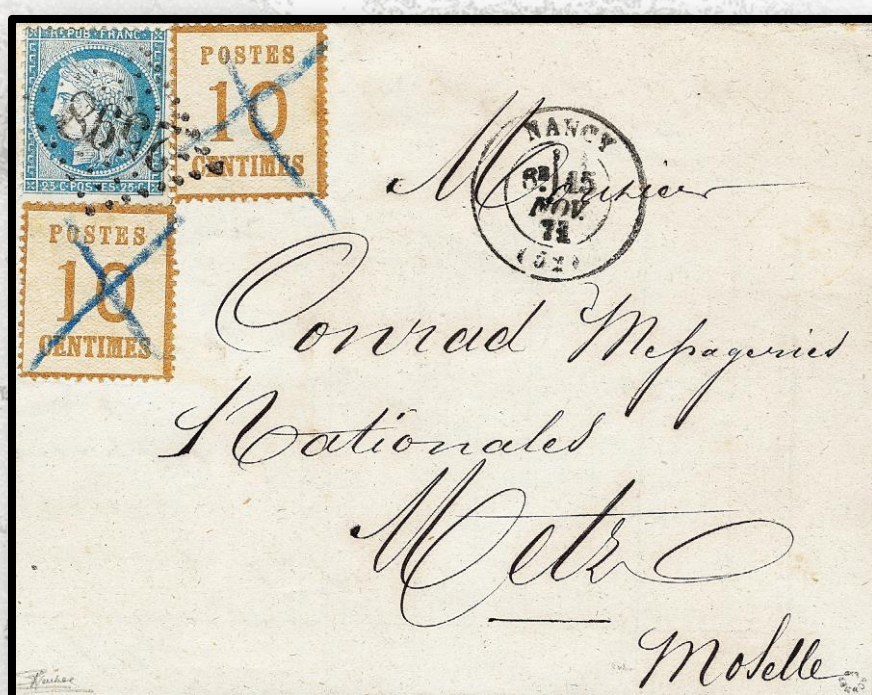 REPUB·FRANC·
25·C·POSTES·25·C
2598
POSTES
10
CENTIMES
POSTES
10
CENTIMES
NANCY
15
NOV.
71
(52)
Monsieur
Conrad Messageries
Nationales
Metz
Moselle